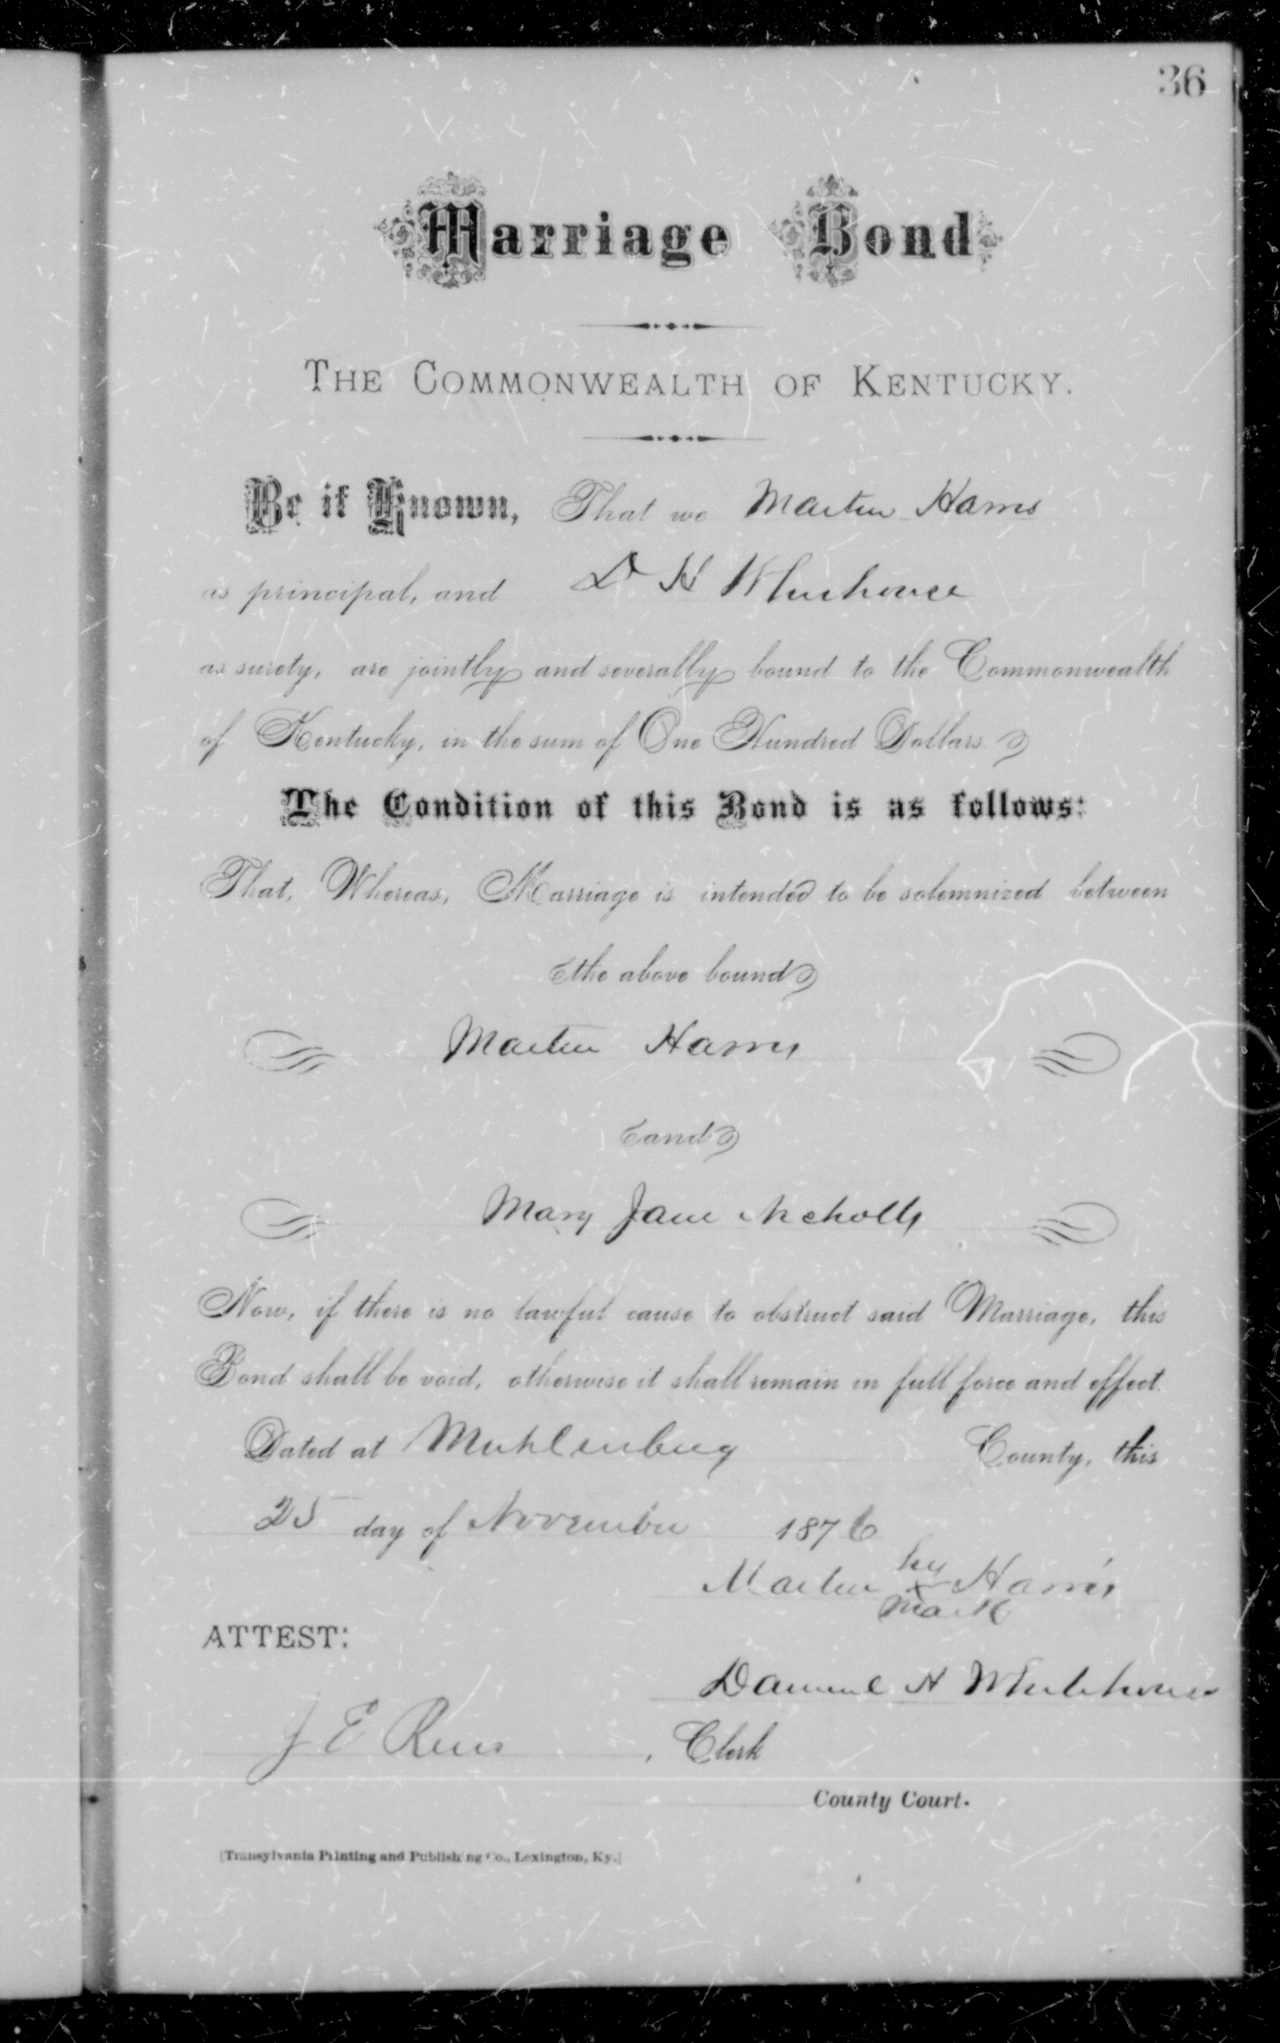 36
Marriage Bond
THE COMMONWEALTH OF KENTUCKY.
Be it Known, That we Martin Harris
as principal, and D H Whitehouse
as surety, are jointly and severally bound to the Commonwealth
of Kentucky, in the sum of One Hundred Dollars.
The Condition of this Bond is as follows:
That, Whereas, Marriage is intended to be solemnized between
the above bound
Martin Harris
and
Mary Jane Nicholls
Now, if there is no lawful cause to obstruct said Marriage, this
Bond shall be void, otherwise it shall remain in full force and effect.
Dated at Muhlenburg County, this
25 day of November 1876
his
Martin x Harris
mark
ATTEST:
Daniel H Whitehouse
J E Reno, Clerk
County Court.
[Transylvania Printing and Publishing Co., Lexington, Ky.]